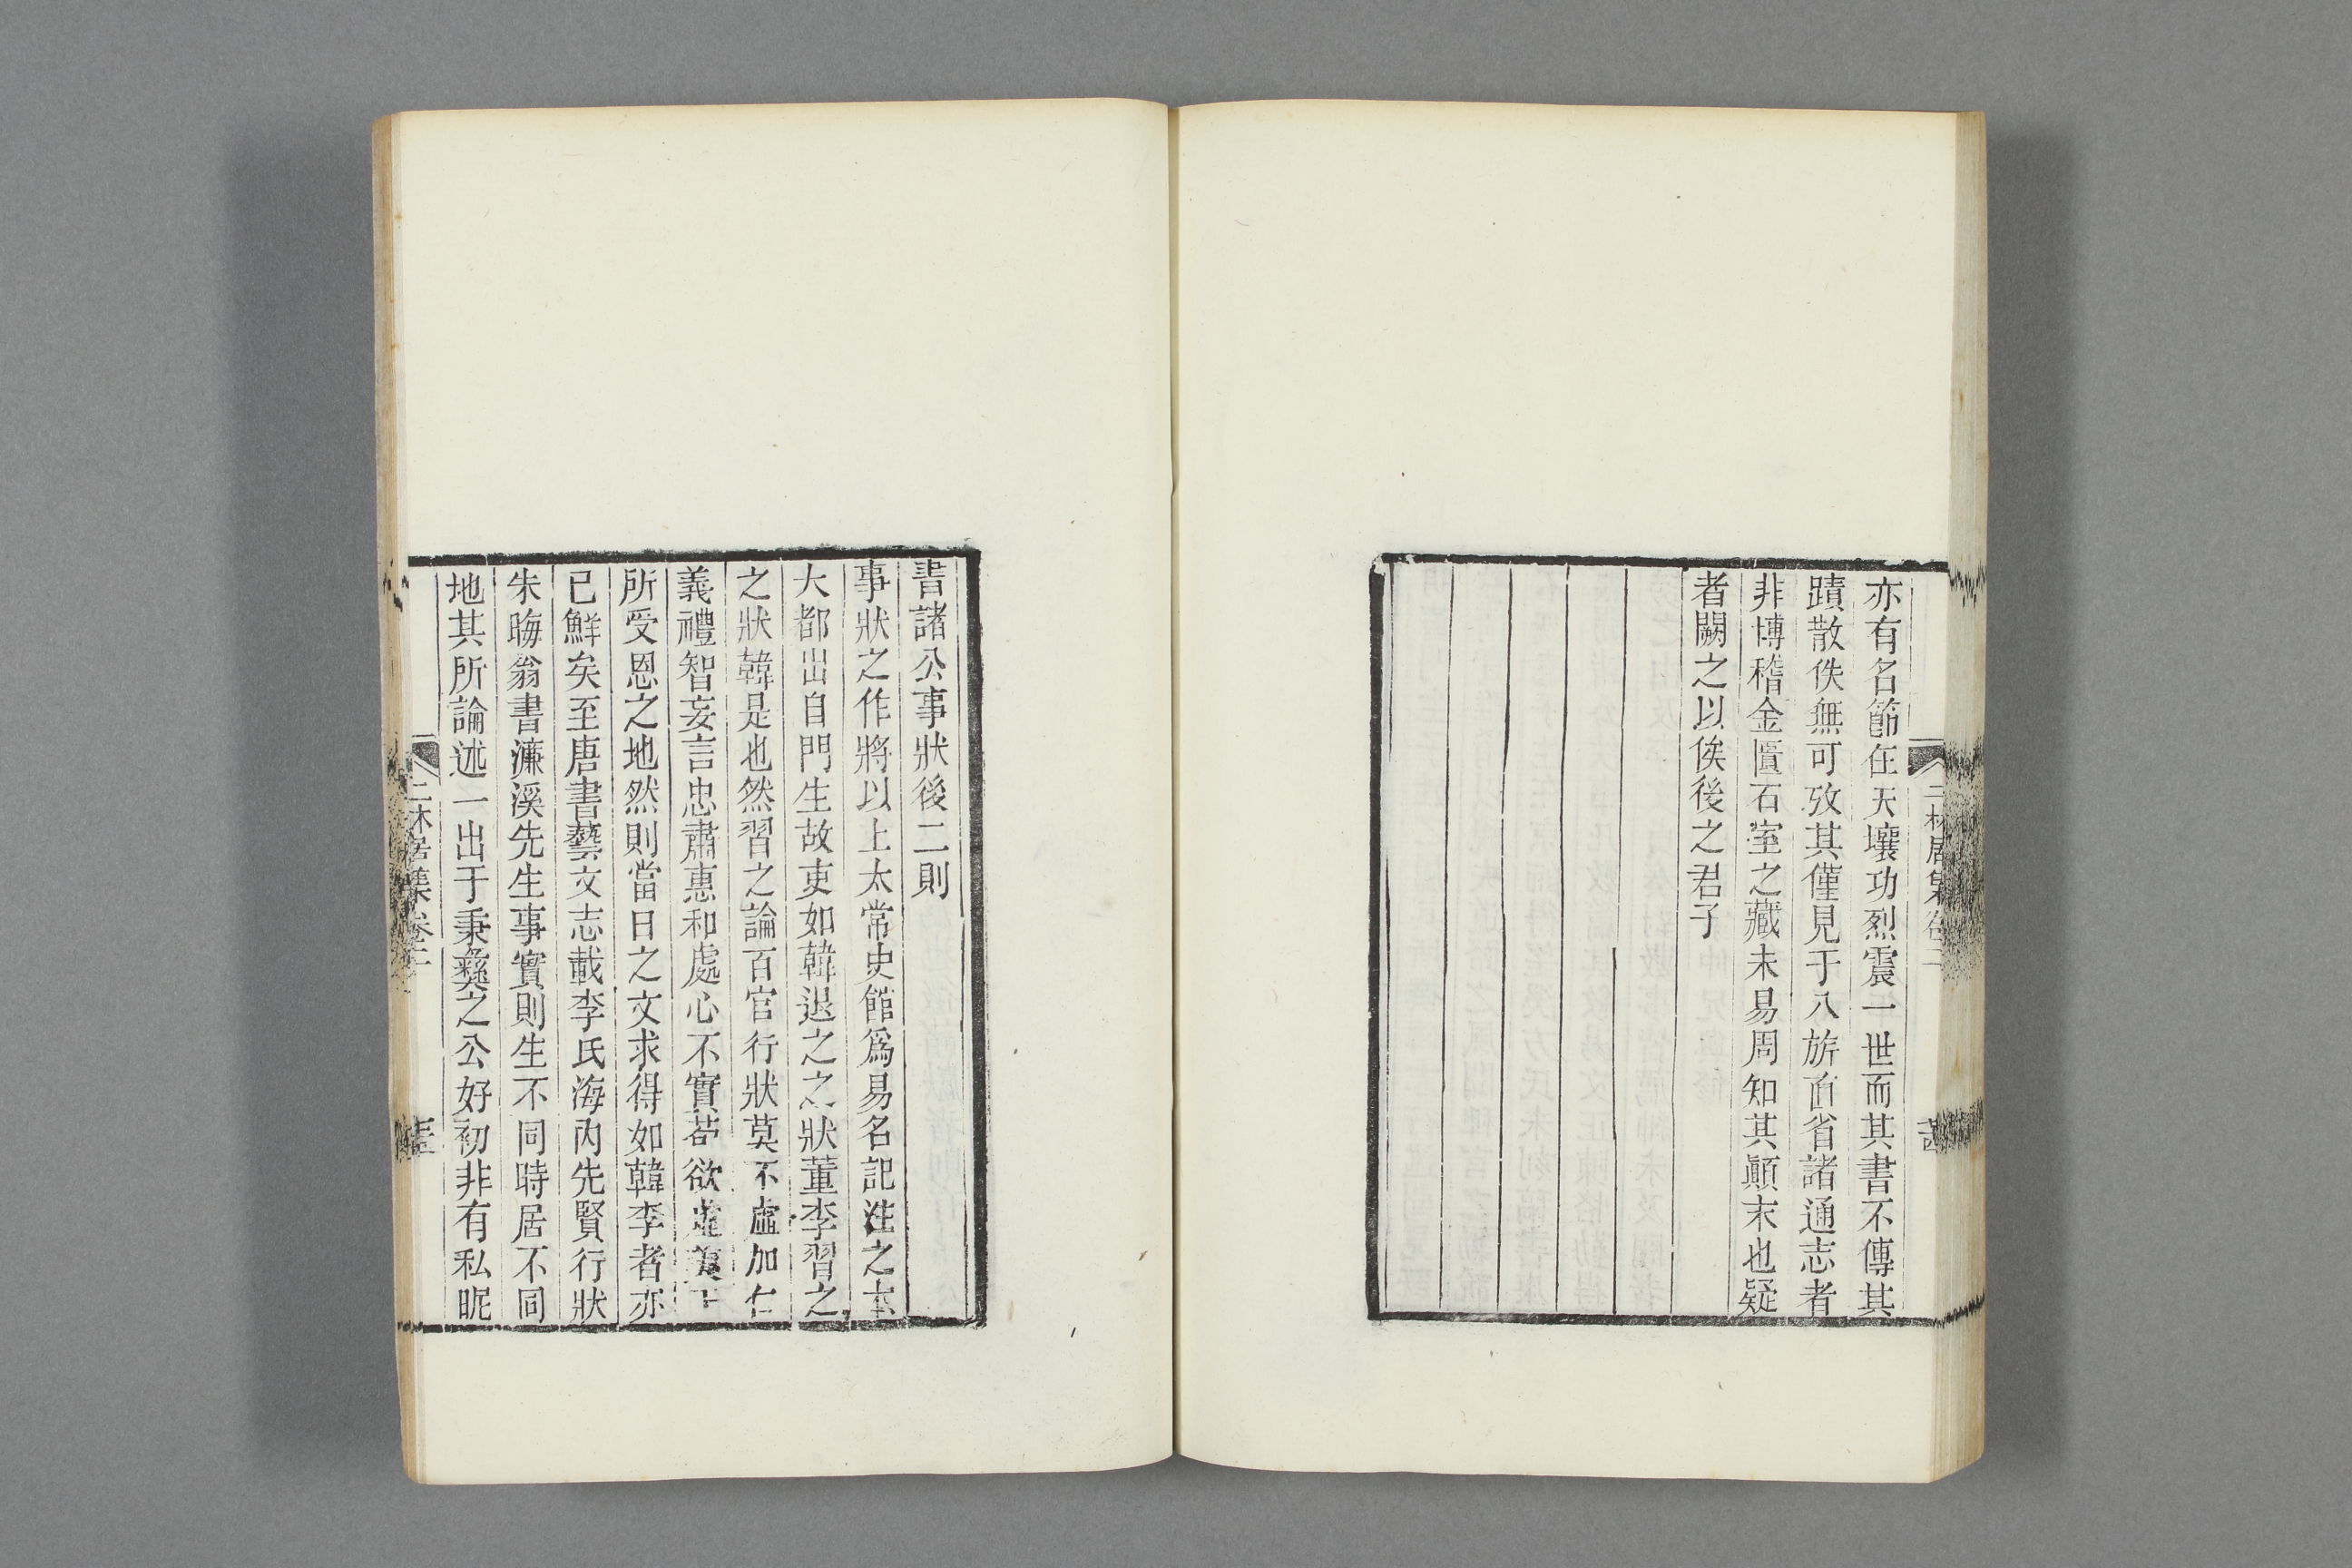 亦有名節在天壤功烈震一世而其書不傳其
蹟散佚無可攷其僅見于八旂直省諸通志者
非博稽金匱石室之藏未易周知其顚末也疑
者闕之以俟後之君子
二林居集卷二
書諸公事狀後二則
事狀之作將以上太常史館爲易名記注之本
大都出自門生故吏如韓退之之狀董李習之
之狀韓是也然習之論百官行狀莫不虛加仁
義禮智妄言忠肅惠和處心不實苟欲虛美于
所受恩之地然則當日之文求得如韓李者亦
已鮮矣至唐書藝文志載李氏海內先賢行狀
朱晦翁書濂溪先生事實則生不同時居不同
地其所論述一出于秉彝之公好初非有私昵
二林居集卷二